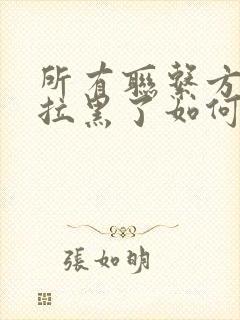 所有聯繫方
拉黑了如何
張如明